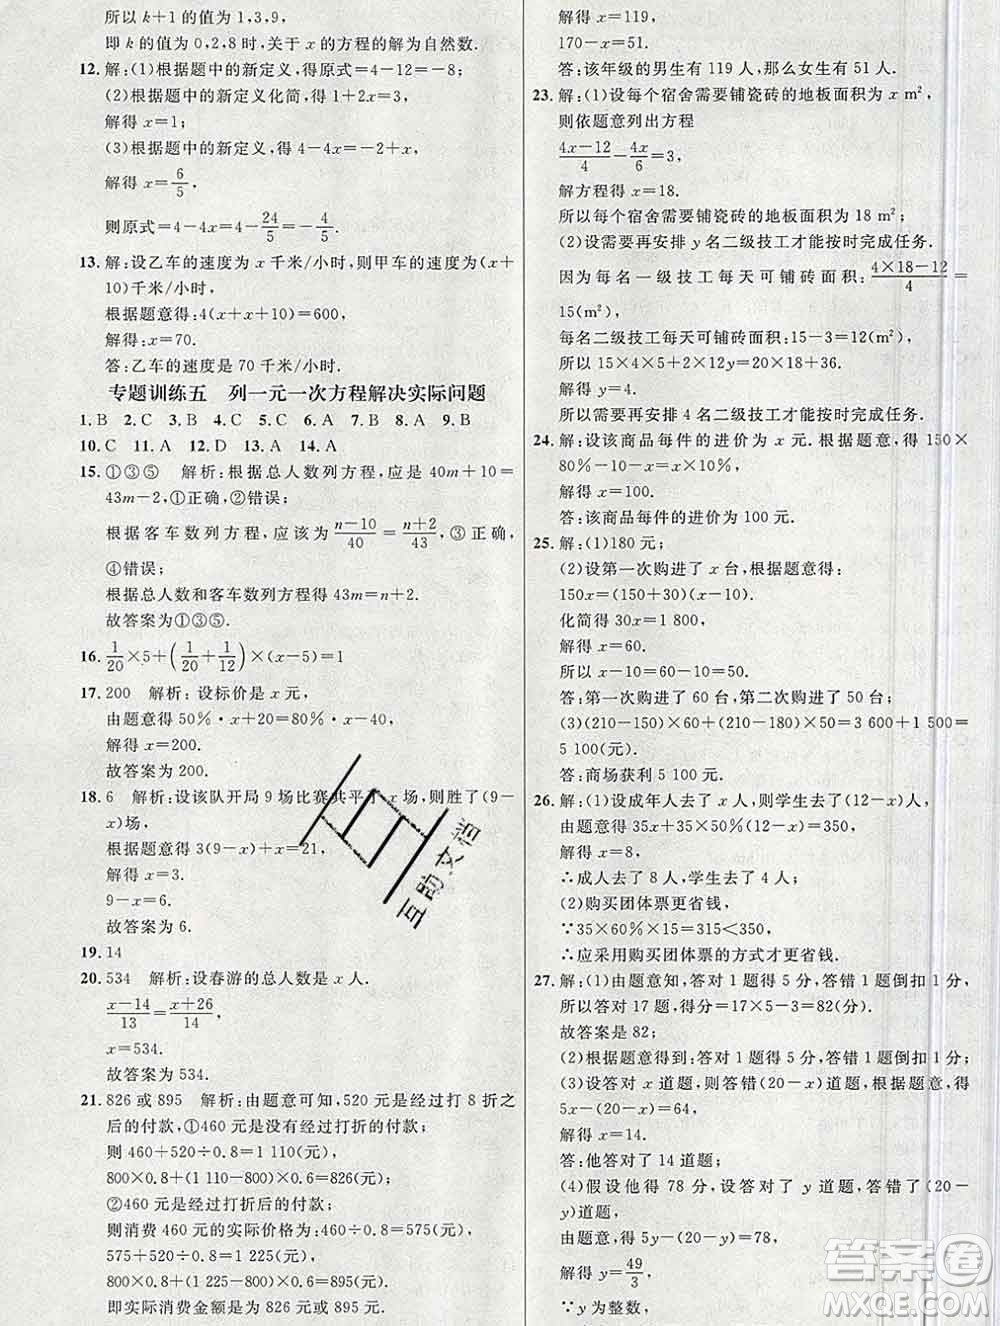 所以 k+1 的值为 1,3,9,
即 k 的值为 0,2,8 时,关于 x 的方程的解为自然数.
12. 解:(1)根据题中的新定义,得原式=4-12=-8;
(2)根据题中的新定义化简,得 1+2x=3,
解得 x=1;
(3)根据题中的新定义,得 4-4x=-2+x,
解得 x=6/5,
则原式=4-4x=4-24/5=-4/5.
13. 解:设乙车的速度为 x 千米/小时,则甲车的速度为(x+
10)千米/小时,
根据题意得:4(x+x+10)=600,
解得:x=70.
答:乙车的速度是 70 千米/小时.
专题训练五 列一元一次方程解决实际问题
1. B 2. C 3. C 4. C 5. C 6. A 7. A 8. A 9. B
10. C 11. A 12. D 13. A 14. A
15. ①③⑤ 解析:根据总人数列方程,应是 40m+10=
43m-2,①正确,②错误;
根据客车数列方程,应该为 (n-10)/40=(n+2)/43,③正确,
④错误;
根据总人数和客车数列方程得 43m=n+2.
故答案为①③⑤.
16. 1/20×5+(1/20+1/12)×(x-5)=1
17. 200 解析:设标价是 x 元,
由题意得 50%·x+20=80%·x-40,
解得 x=200.
故答案为 200.
18. 6 解析:设该队开局 9 场比赛共平了 x 场,则胜了(9-
x)场,
根据题意得 3(9-x)+x=21,
解得:x=3.
9-x=6.
故答案为 6.
19. 14
20. 534 解析:设春游的总人数是 x 人.
(x-14)/13=(x+26)/14,
x=534.
故答案为 534.
21. 826 或 895 解析:由题意可知,520 元是经过打 8 折之
后的付款,①460 元是没有经过打折的付款,
则 460+520÷0.8=1 110(元),
800×0.8+(1 110-800)×0.6=826(元);
②460 元是经过打折后的付款,
则消费 460 元的实际价格为:460÷0.8=575(元),
575+520÷0.8=1 225(元),
800×0.8+(1 225-800)×0.6=895(元).
即实际消费金额是为 826 元或 895 元.
解得 x=119,
170-x=51.
答:该年级的男生有 119 人,那么女生有 51 人.
23. 解:(1)设每个宿舍需要铺瓷砖的地板面积为 x m²,
则依题意列出方程
(4x-12)/4-4x/6=3,
解方程得 x=18.
所以每个宿舍需要铺瓷砖的地板面积为 18 m²;
(2)设需要再安排 y 名二级技工才能按时完成任务.
因为每名一级技工每天可铺砖面积:(4×18-12)/4=
15(m²),
每名二级技工每天可铺砖面积:15-3=12(m²),
所以 15×4×5+2×12y=20×18+36.
解得 y=4.
所以需要再安排 4 名二级技工才能按时完成任务.
24. 解:设该商品每件的进价为 x 元.根据题意,得 150×
80%-x=x×10%,
解得 x=100.
答:该商品每件的进价为 100 元.
25. 解:(1)180 元;
(2)设第一次购进了 x 台,根据题意得:
150x=(150+30)(x-10)
化简得 30x=1 800,
解得 x=60.
所以 x-10=60-10=50.
答:第一次购进了 60 台,第二次购进了 50 台;
(3)(210-150)×60+(210-180)×50=3 600+1 500=
5 100(元).
答:商场获利 5 100 元.
26. 解:(1)设成年人去了 x 人,则学生去了(12-x)人,
由题意得 35x+35×50%×(12-x)=350,
解得 x=8,
∴成人去了 8 人,学生去了 4 人;
(2)购买团体票更省钱,
∵35×60%×15=315<350,
∴应采用购买团体票的方式才更省钱.
27. 解:(1)由题意知,答对 1 题得 5 分,答错 1 题倒扣 1 分,
所以答对 17 题,得分=17×5-3=82(分),
故答案是 82;
(2)根据题意得到:答对 1 题得 5 分,答错 1 题倒扣 1 分;
(3)设答对 x 道题,则答错(20-x)道题,根据题意,得
5x-(20-x)=64,
解得 x=14.
答:他答对了 14 道题;
(4)假设他得 78 分,设答对了 y 道题,答错了(20-
y)道题,
由题意,得 5y-(20-y)=78,
解得 y=49/3,
∵y 为整数,
互助文档
答案圈
MXQE.COM